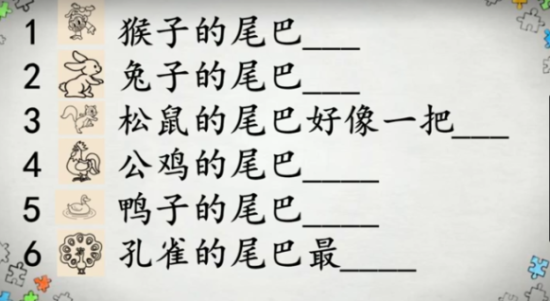 1 猴子的尾巴___
2 兔子的尾巴___
3 松鼠的尾巴好像一把___
4 公鸡的尾巴____
5 鸭子的尾巴____
6 孔雀的尾巴最____